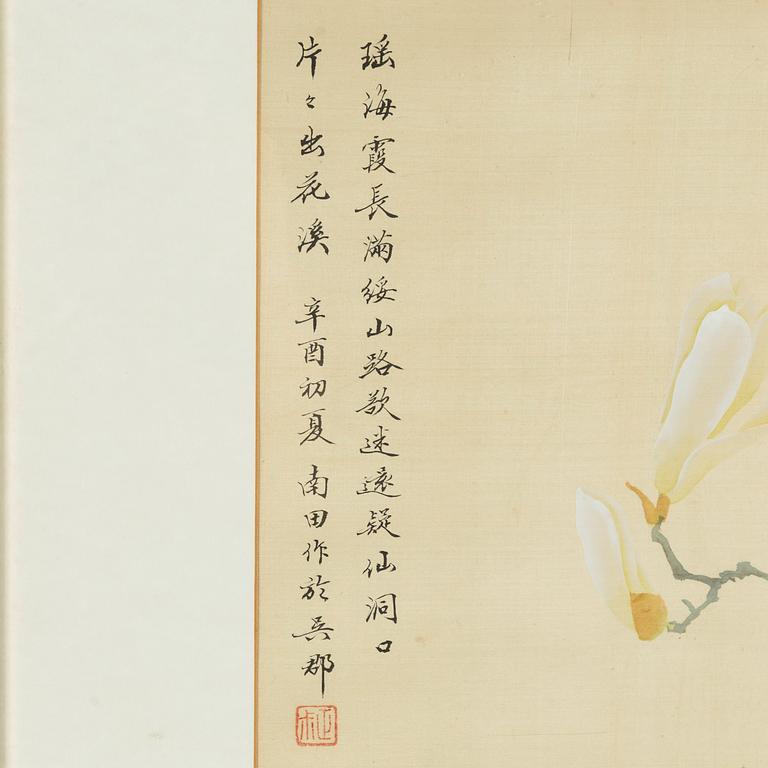 瑶海霞長滿綏山路欲迷遠疑仙洞口
片々出花溪 辛酉初夏 南田作於吳郡